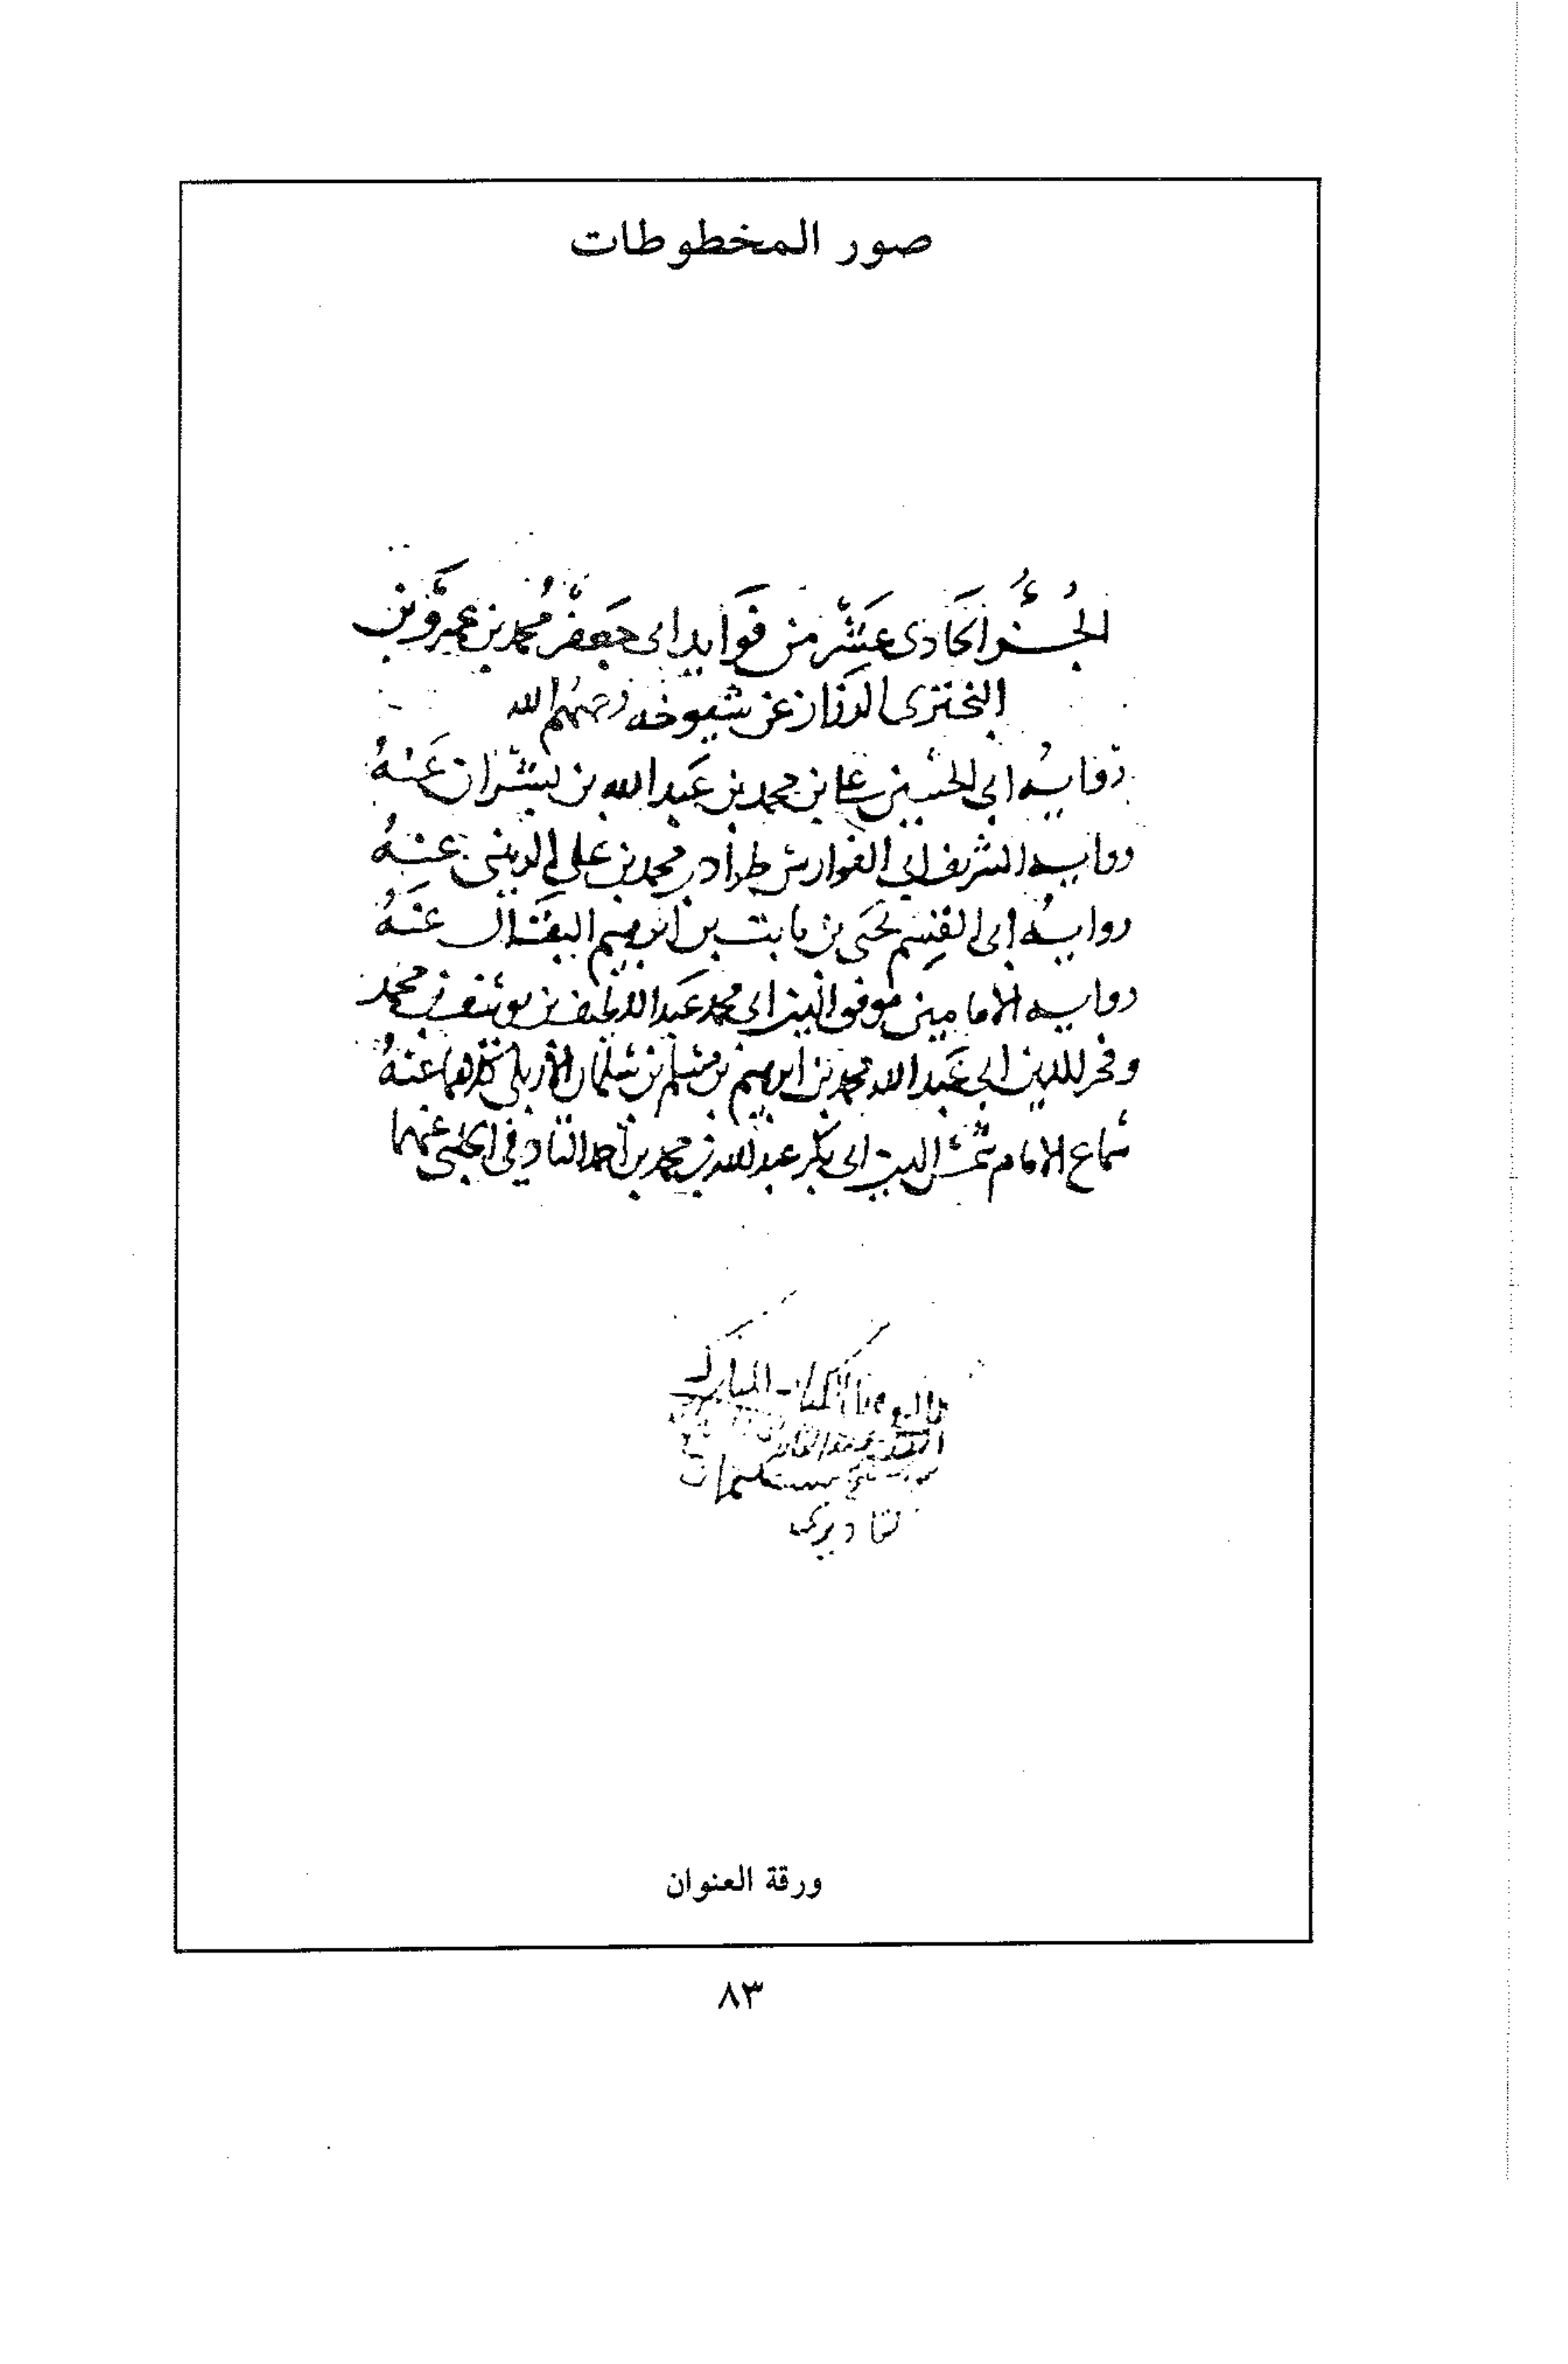 صور المخطوطات
الجُزءُ الحَادى عَشَر من فَوَايد ابى جَعفَر مُحمد بن عَمرو بن
البَختَرى الرزاز عن شيوخه رحمهم الله
روايةُ ابى الحُسَين على بن محمد بن عَبد الله بن بشران عَنْهُ
رواية الشريف ابى الفوارس طراد بن محمد بن على الزينبى عنهُ
روايةُ ابى القسم يَحيَى بن ثابت بن ابرهيم البقال عَنْهُ
رواية الامامين موفق الدين ابى محمد عَبد اللطيف بن يوسف بن محمد
وفخر الدين ابى عَبد الله محمد بن ابرهيم بن مسلم بن سلمان الاربلى كلاهما عنهُ
سماع الامام شمس الدين ابى بكر عبد الله بن محمد بن احمد التادفى الحلبى عنهما
طالع هذا الكتاب المبارك
قادري
ورقة العنوان
٨٣